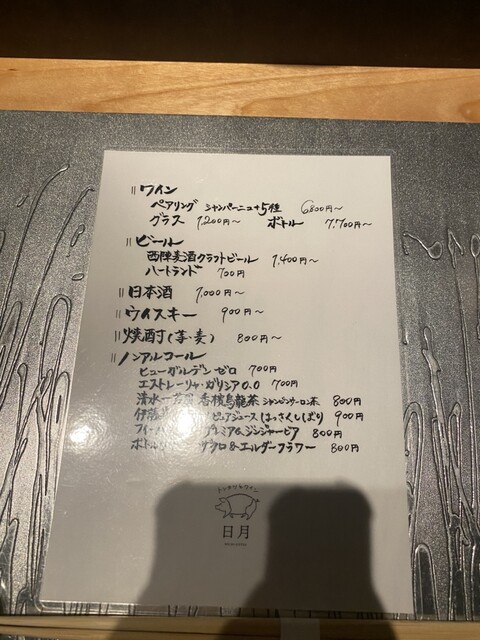 〃ワイン
ペアリング シャンパーニュ+5種 6,800円～
グラス 1,200円～ ボトル 7,700円～
〃ビール
西陣麦酒クラフトビール 1,400円～
ハートランド 700円
〃日本酒 1,000円～
〃ウイスキー 900円～
〃焼酎(芋・麦) 800円～
〃ノンアルコール
ヒューガルデン ゼロ 700円
エストレーリャ・ガリシア 0.0 700円
清水一芳園 香檳烏龍茶 シャンピンウーロン茶 800円
ピュアジュース はっさくしぼり 900円
プレミアム ジンジャービア 800円
ザクロ&エルダーフラワー 800円
トンカツ&ワイン
日月